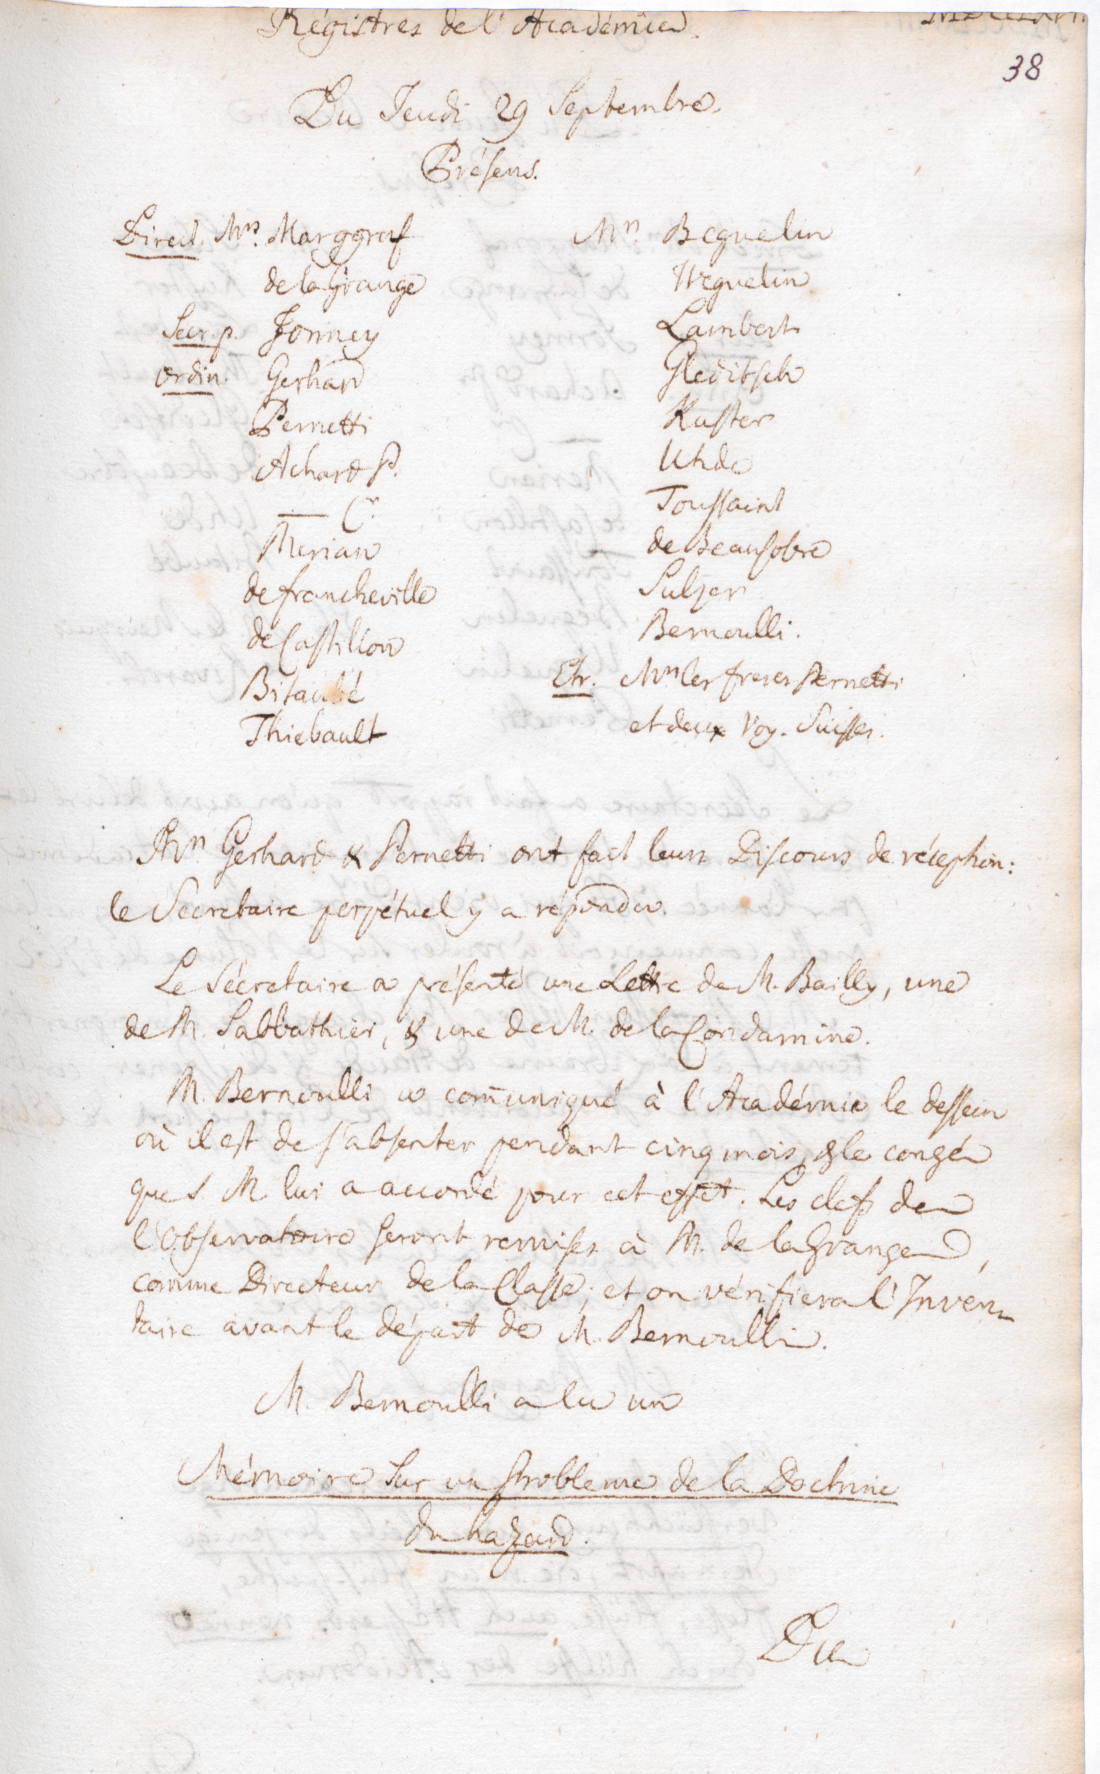 Régistres de l'Académie.
38
Du Jeudi 29 Septembre.
Présens.
Direct. Mrs. Marggraf
de la Grange
Secr. p. Formey
Ordin. Gerhard
Pernetti
Achard P.
— Cr
Merian
de francheville
de Castillon
Bitaubé
Thiebault
Mrs. Beguelin
Weguelin
Lambert
Gleditsch
Kuster
Uhde
Toussaint
de Beausobre
Sulzer
Bernoulli.
Etr. Mrs les freres Pernetti
et deux Voy. Suisses.
Mrs. Gerhard & Pernetti ont fait leurs Discours de réception:
le Sécretaire perpétuel y a répondu.
Le Sécretaire a présenté une Lettre de M. Bailly, une
de M. Sabbathier, & une de M. de la Condamine.
M. Bernoulli a com̄uniqué à l'Académie le dessein
où il est de s'absenter pendant cinq mois, & le congé
que S. M. lui a accordé pour cet effet. Les clefs de
l'Observatoire seront remises à M. de la Grange,
comme Directeur de la Classe; et on vérifiera l'Inven-
taire avant le départ de M. Bernoulli.
M. Bernoulli a lu un
Mémoire sur un Probleme de la Doctrine
du hazard.
Du